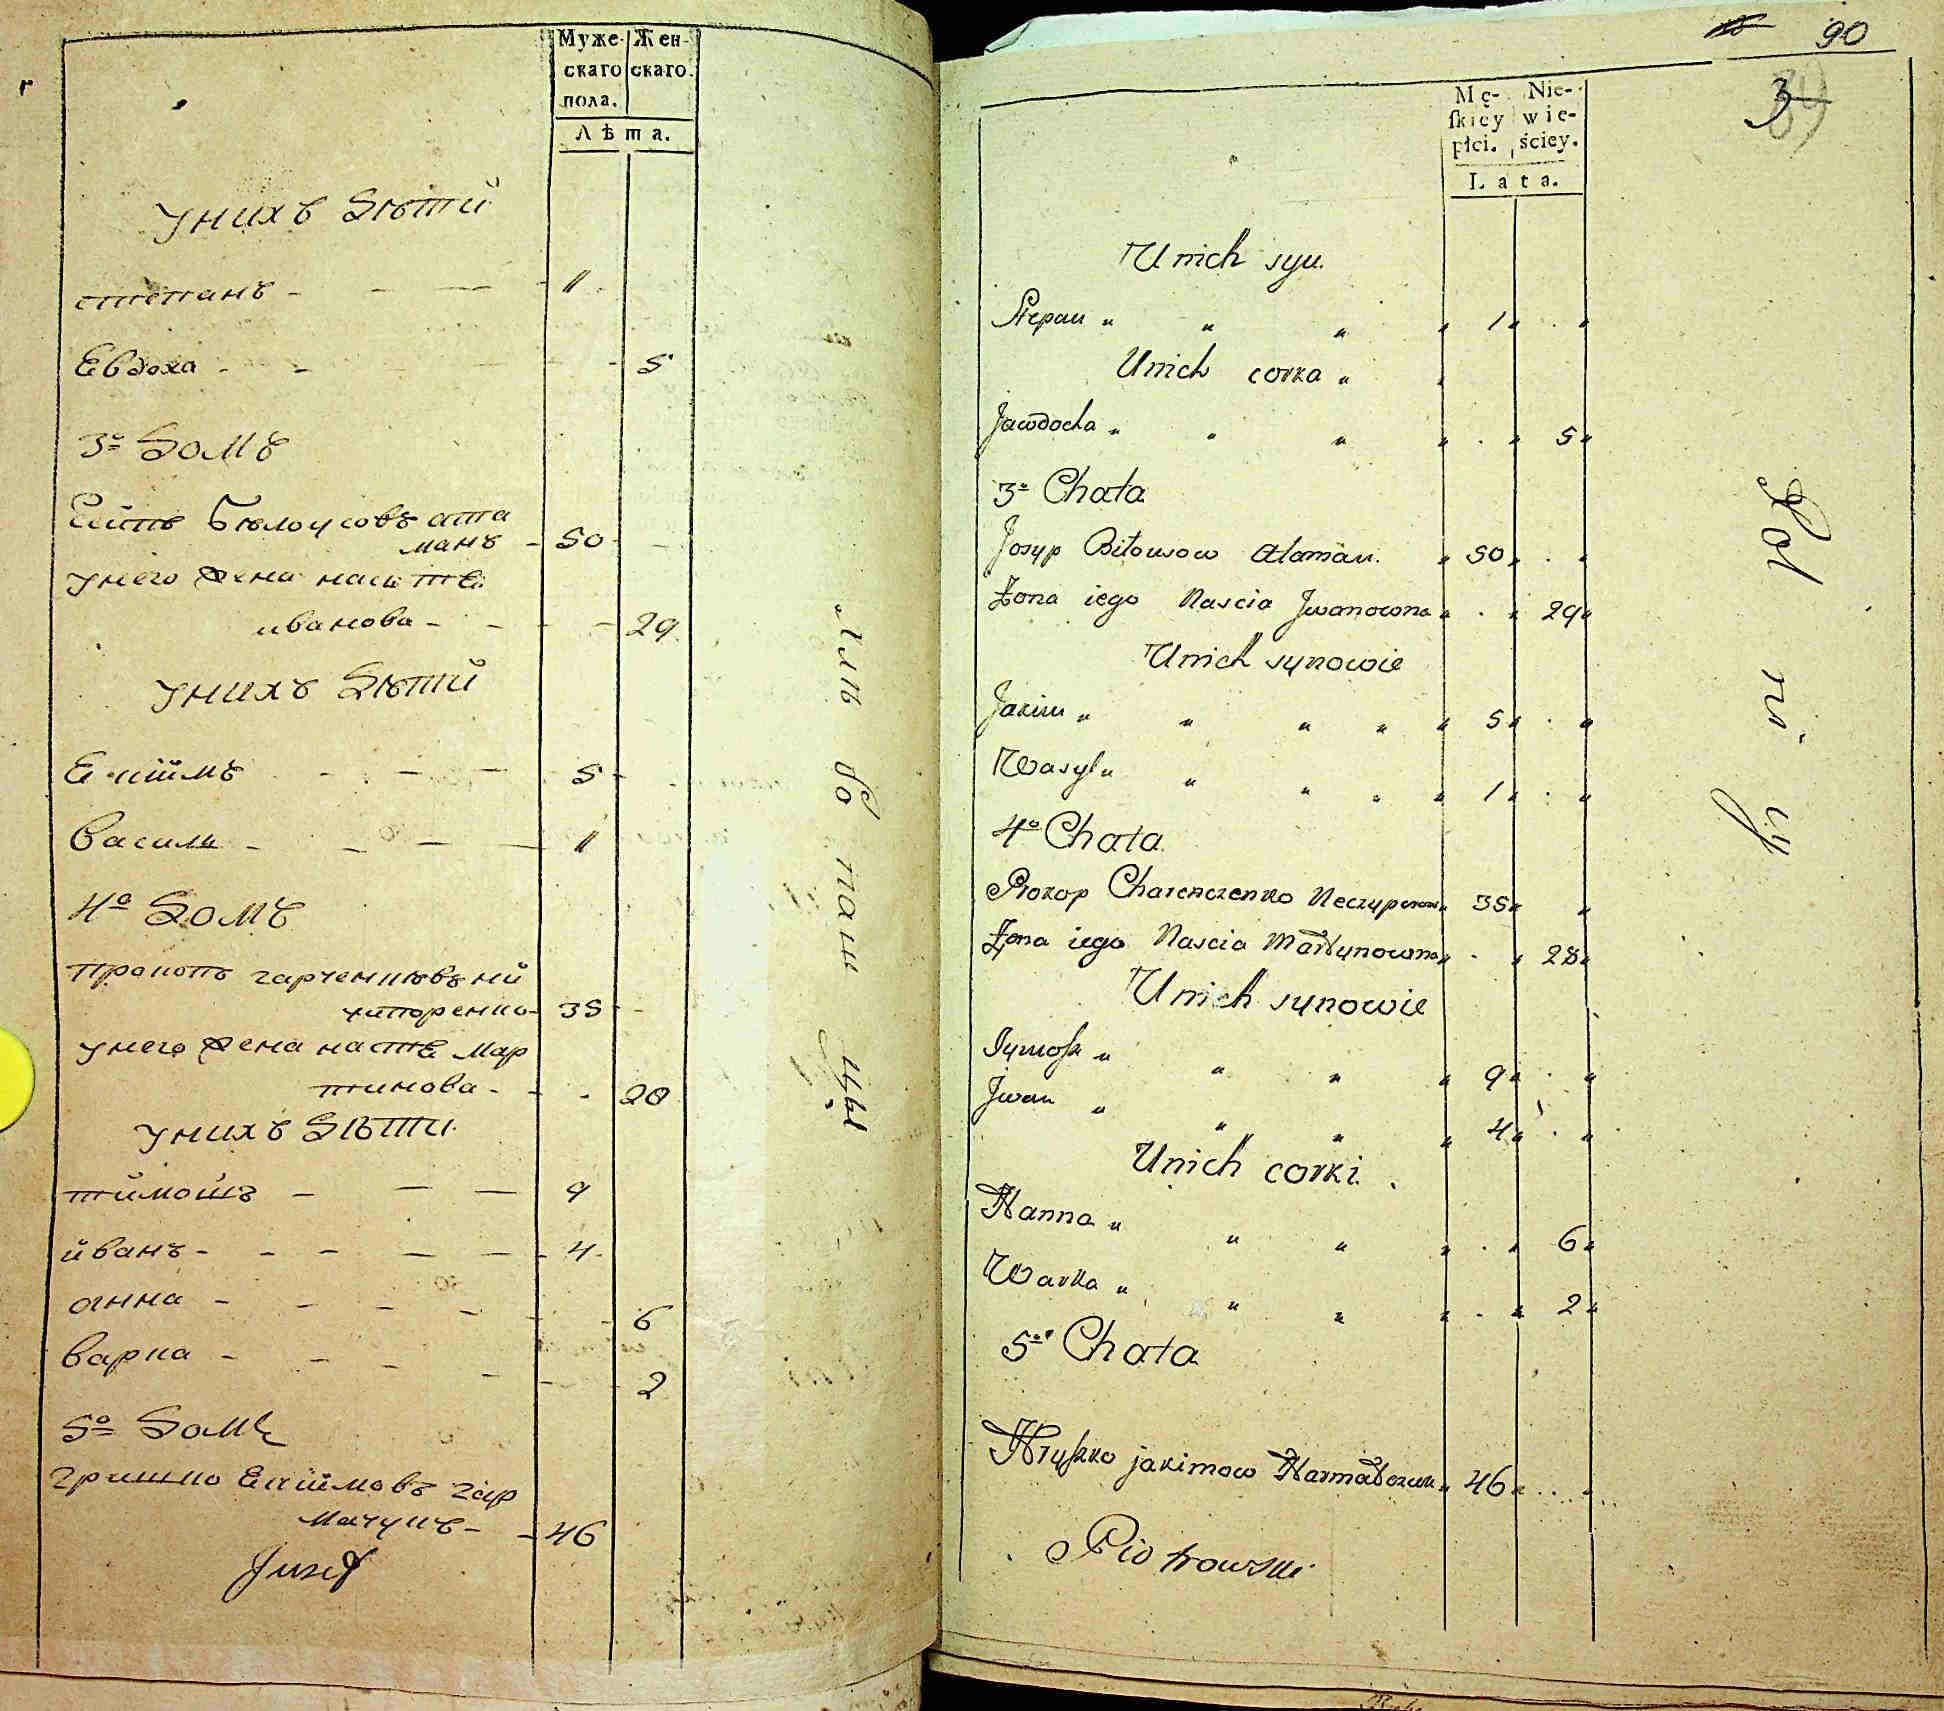 Муже- Жен-
скаго скаго.
пола.
Лѣта.
у нихъ дѣтй
степанъ - - - - 1
Евдоха - - - - 5
3º домъ
Есипъ Бѣлоусовъ ата
манъ - 50
у него жена насьтя
иванова - - - - 29
у нихъ дѣтй
Екимъ - - - 5
василь - - - - 1
4º домъ
Прокопъ гарченковъ ни
хипоренко - 35
у него жена настя мар
тинова - - - 28
у нихъ дѣти
тимошъ - - - 9
иванъ - - - - - 4
анна - - - - - - 6
варка - - - - - 2
5º домъ
гришко Екимовъ гар
мачукъ - - 46
Jozef
90
3
Mę- Nie-
ſkiey wie-
płci. ściey.
Lata.
U nich syn
Stepan " " " " 1 " . "
U nich corka "
Jawdocha " " " " . " 5 "
3º Chata
Josyp Biłousow Ataman. " 50 " . "
Żona iego Nascia Jwanowna " . " 29 "
U nich synowie
Jakim " " " " " 5 " . "
Wasyl " " " " " 1 " . "
4º Chata
Prokop Charenczenko Neczyporow " 35 " "
Żona iego Nascia Martynowna " . " 28 "
U nich synowie
Tymosz " " " " 9 " . "
Jwan " " " " 4 " . "
U nich corki .
Hanna " " " " . " 6 "
Warka " " " " . " 2 "
5º Chata
Hryszko jakimow Harmatczuk " 46 " . . . "
Piotrowski